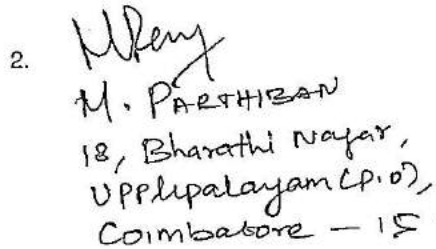 2.
M. PARTHIBAN
18, Bharathi Nagar,
Upplipalayam (P.O),
Coimbatore - 15